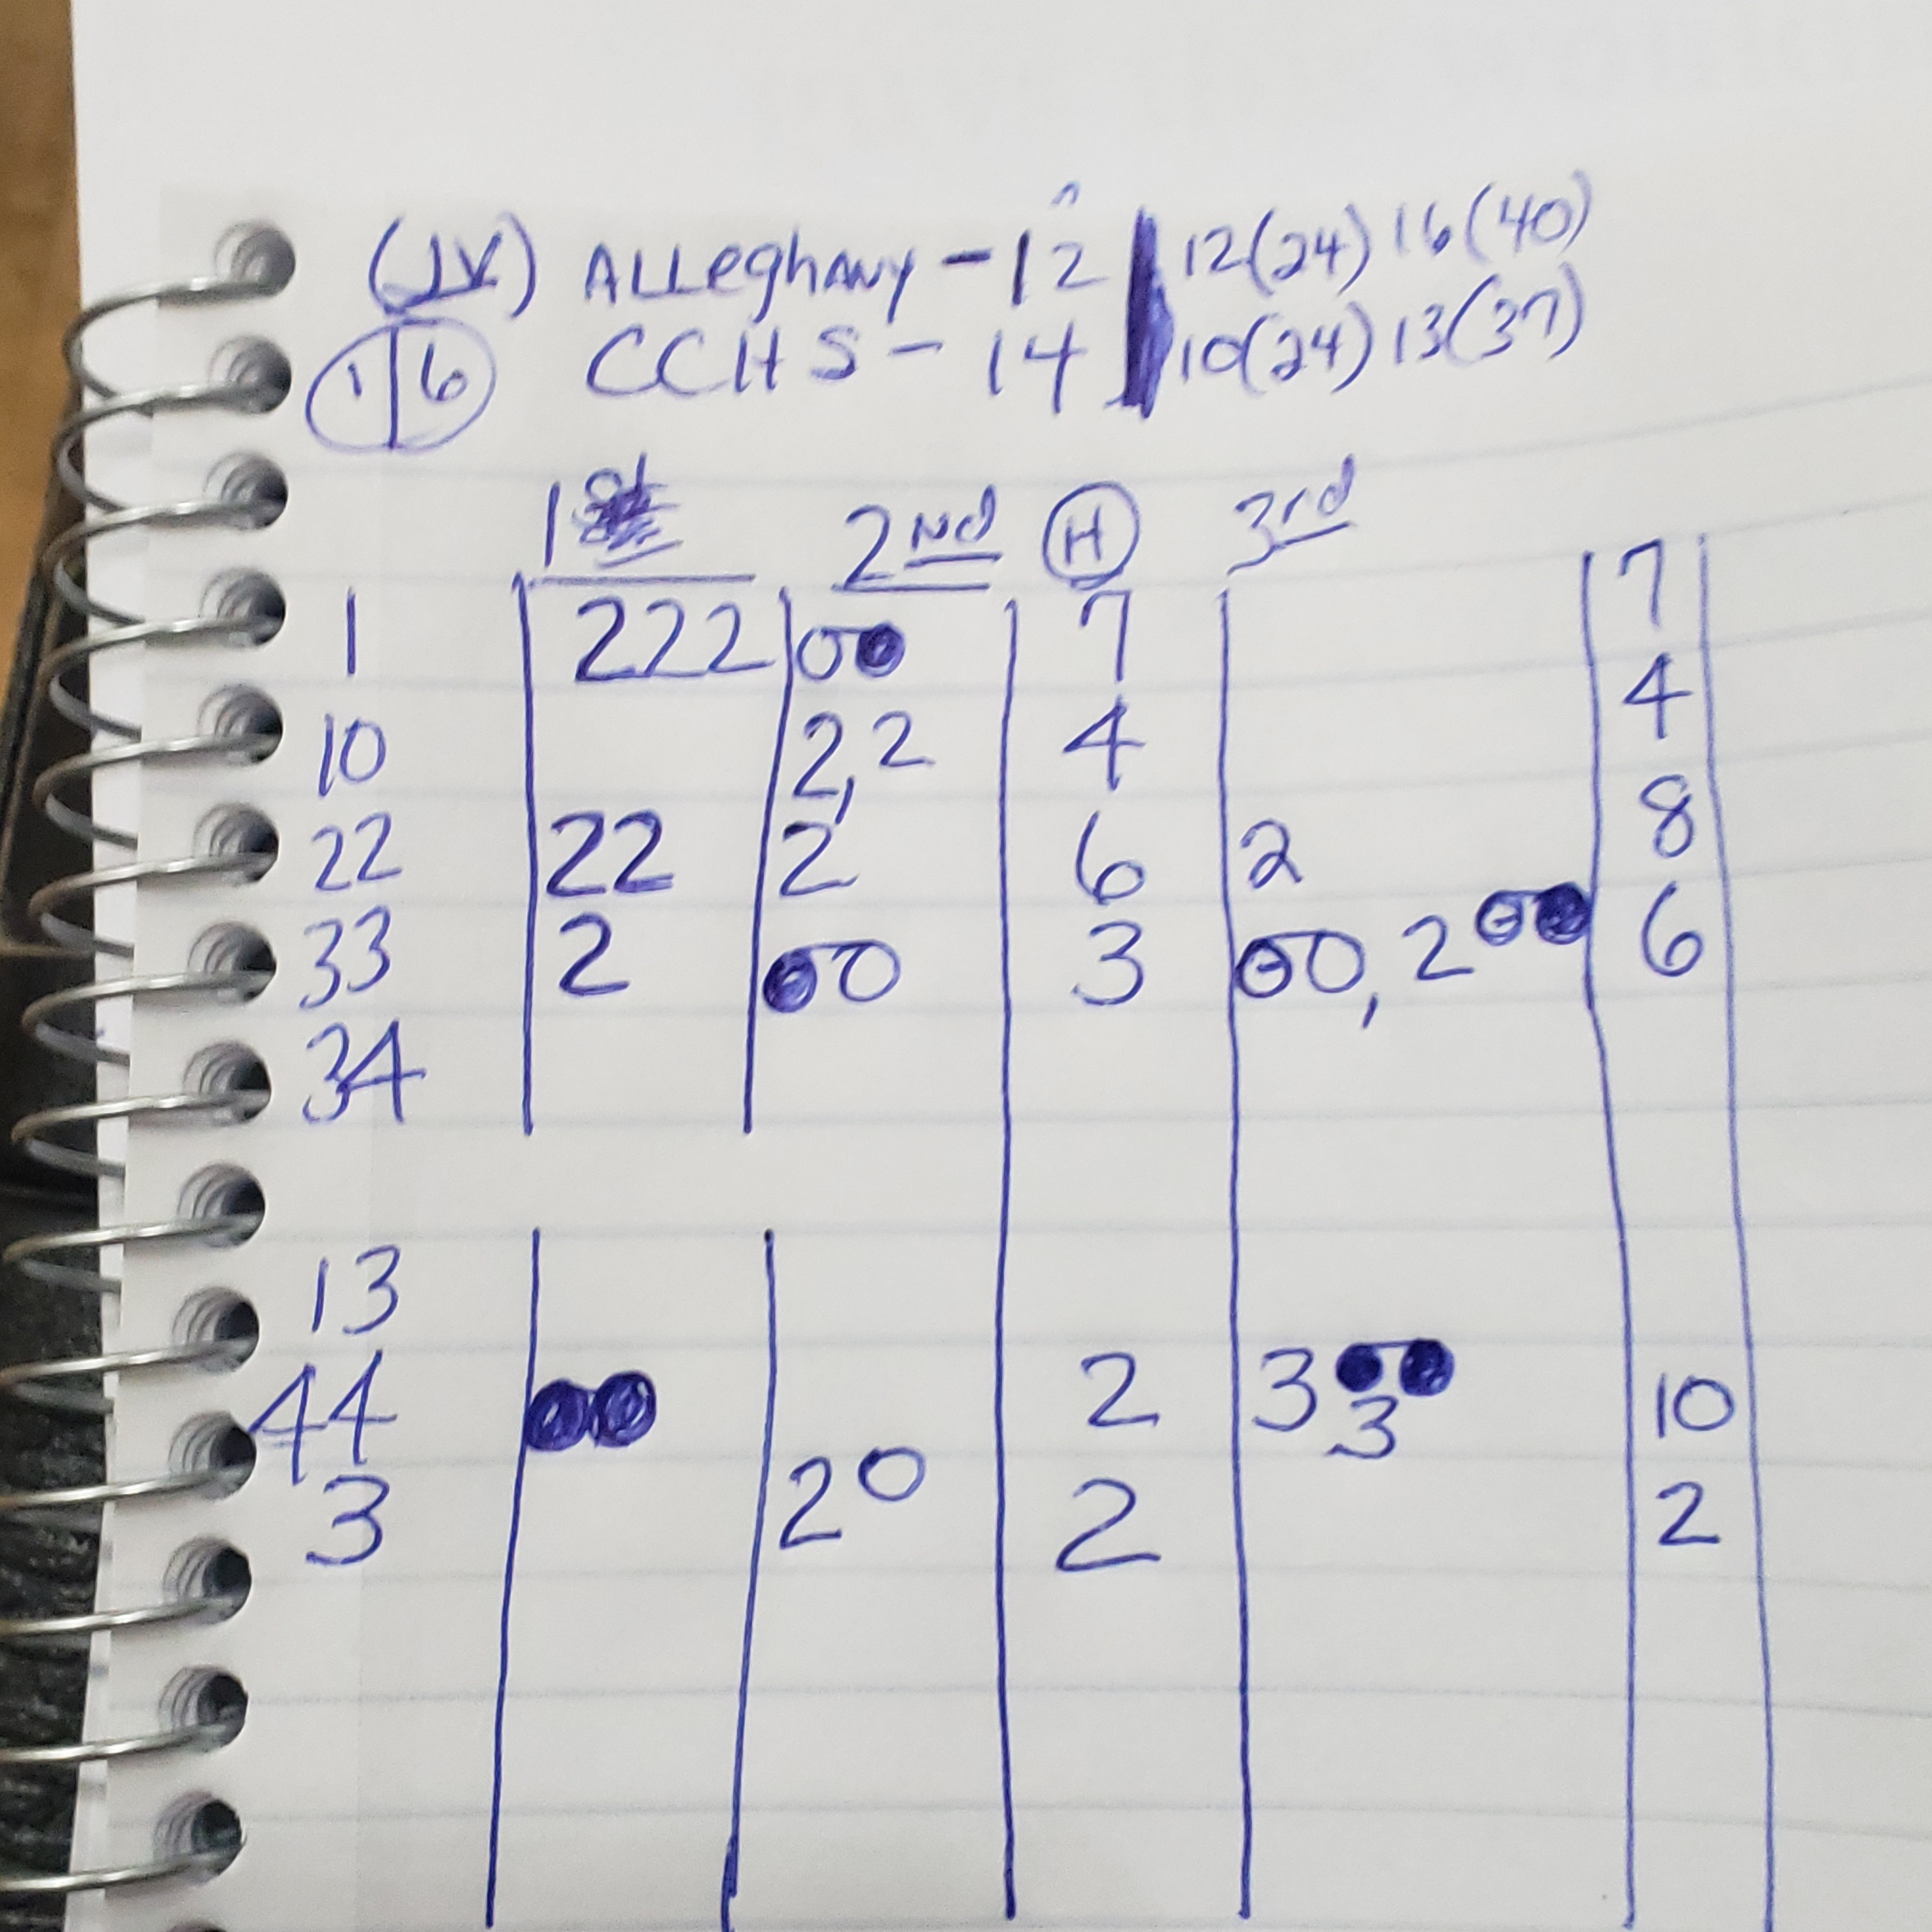 (JV) ALLeghANY - 12 | 12(24) 16(40)
1|6 CCHS - 14 | 10(24) 13(37)
1st 2nd H 3rd
1 222 00 7 7
10 2,2 4 4
22 22 2 6 2 8
33 2 00 3 00, 2 00 6
34
13
44 00 2 3 00 3 10
3 2 0 2 2